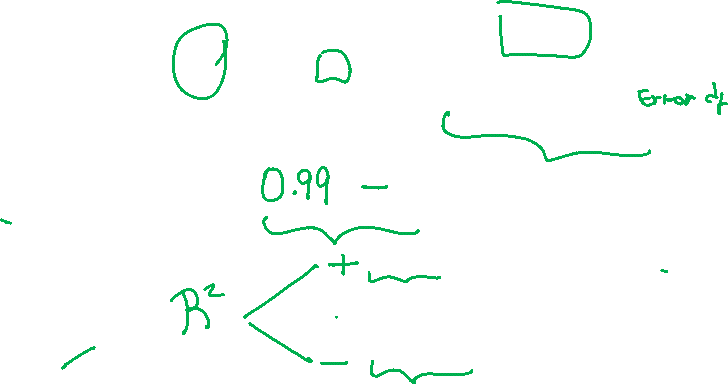 Error df
0.99 –
+
R²
–